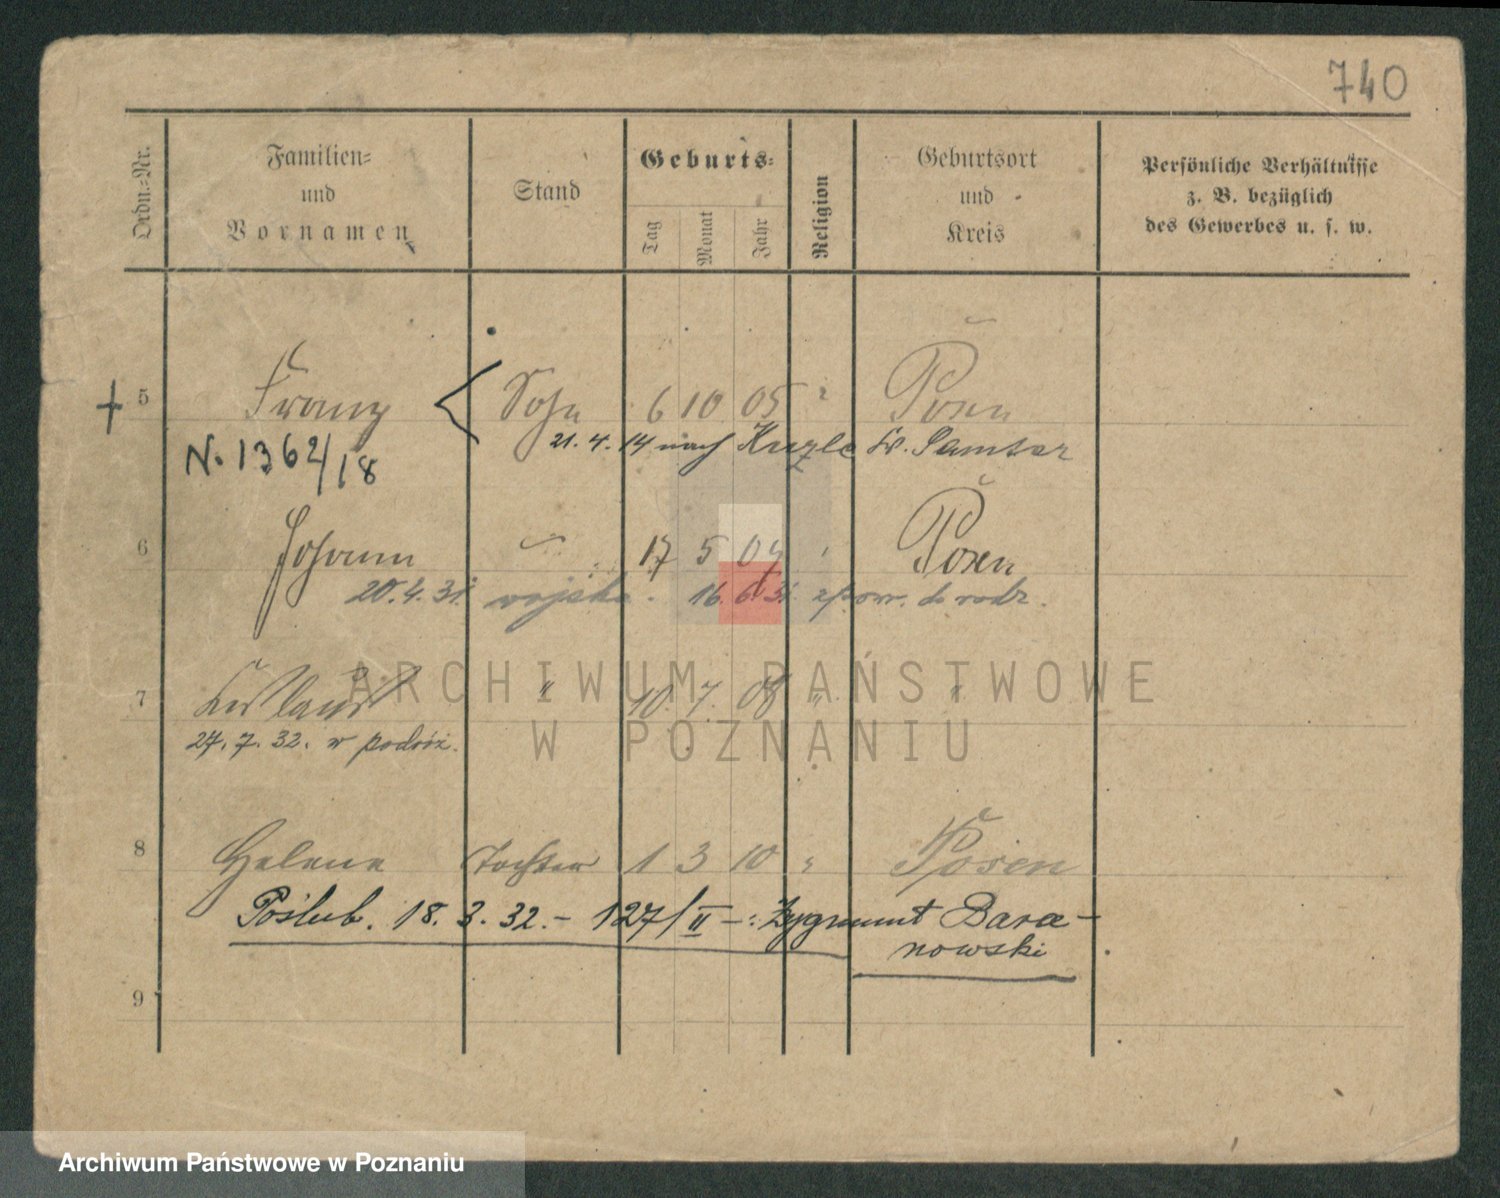 740
Ordn.=Nr.
Familien=
und
Vornamen
Stand
Geburts=
Tag
Monat
Jahr
Religion
Geburtsort
und
Kreis
Persönliche Verhältnisse
z. B. bezüglich
des Gewerbes u. s. w.
+ 5 Franz Sohn 6 10 05 " Posen
21. 4. 14 nach Kr. Samter
N. 1362/18
6 Johann 17 5 07 " Posen
20.4.31. wojska. 16.6.31. z pow. do rodz.
7 Ladislaus " 10. 7. 08 " "
27. 7. 32. w podróż.
8 Helene Tochter 1 3 10 " Posen
Poślub. 18. 3. 32. – 127/II –: Zygmunt Bara-
nowski
9
ARCHIWUM PAŃSTWOWE
W POZNANIU
Archiwum Państwowe w Poznaniu